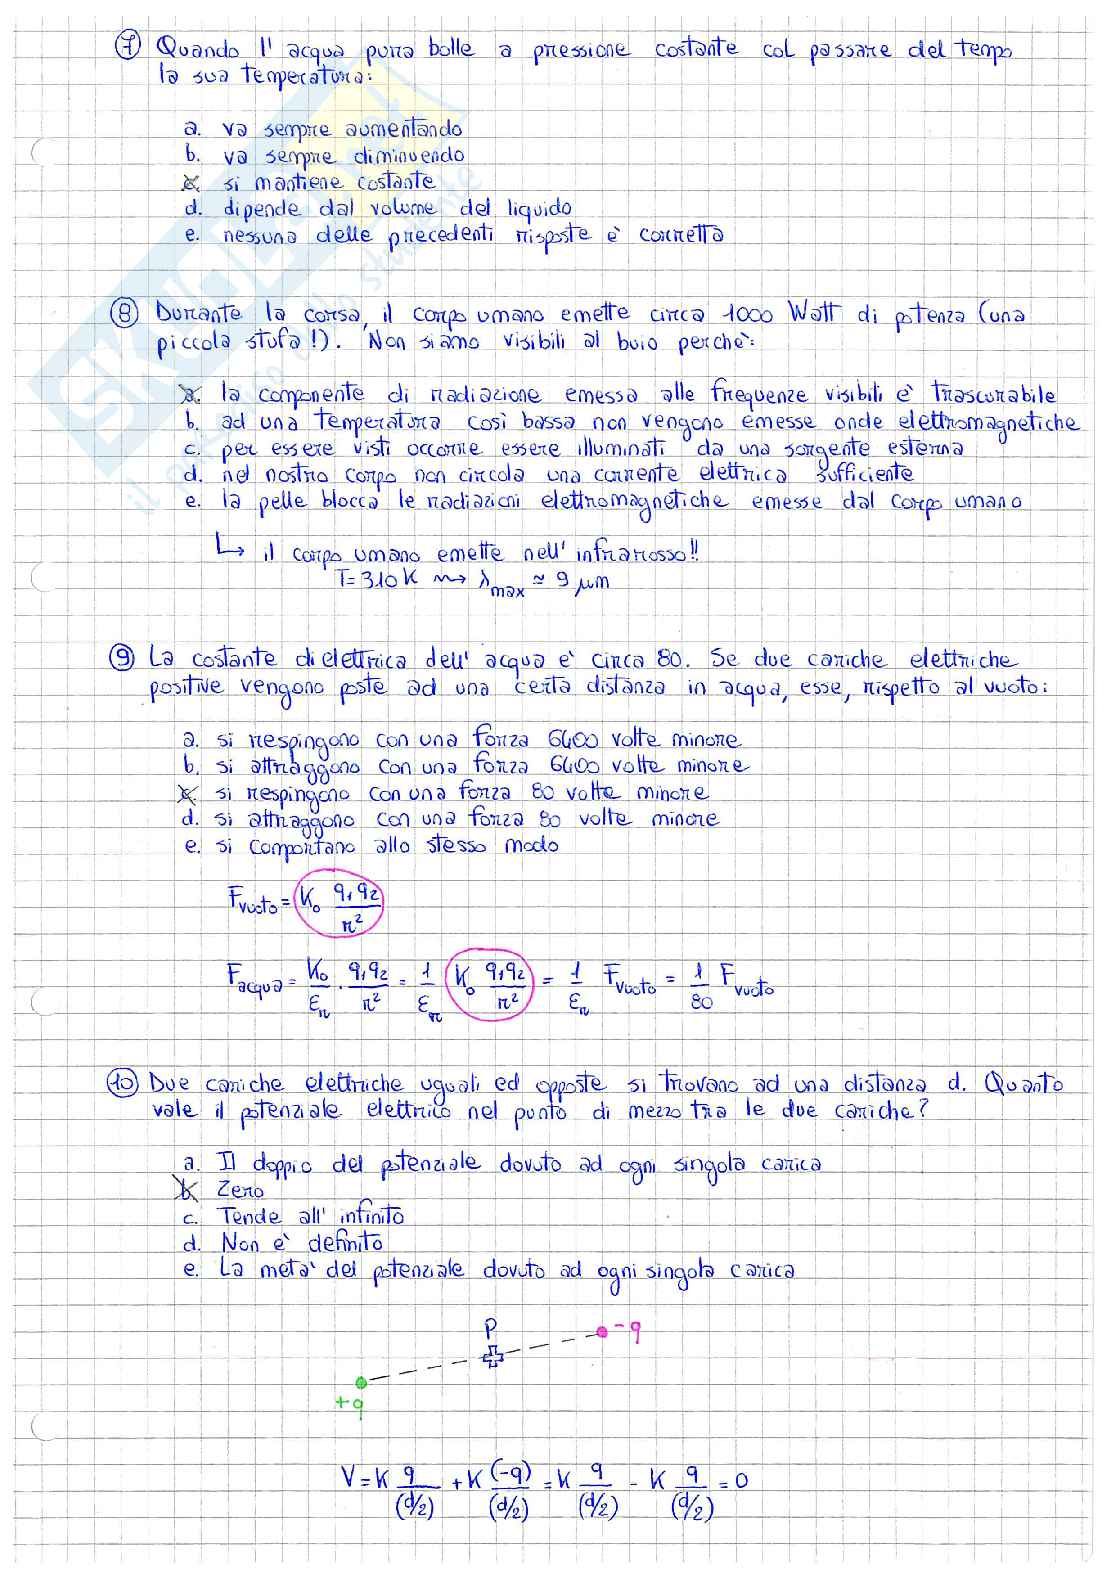 7 Quando l'acqua pura bolle a pressione costante col passare del tempo
la sua temperatura:
a. va sempre aumentando
b. va sempre diminuendo
c. si mantiene costante
d. dipende dal volume del liquido
e. nessuna delle precedenti risposte è corretta
8 Durante la corsa, il corpo umano emette circa 1000 Watt di potenza (una
piccola stufa!). Non siamo visibili al buio perchè:
a. la componente di radiazione emessa alle frequenze visibili è trascurabile
b. ad una temperatura così bassa non vengono emesse onde elettromagnetiche
c. per essere visti occorre essere illuminati da una sorgente esterna
d. nel nostro corpo non circola una corrente elettrica sufficiente
e. la pelle blocca le radiazioni elettromagnetiche emesse dal corpo umano
↳ il corpo umano emette nell'infrarosso!!
T=310K ⇝ λmax ≃ 9 μm
9 La costante dielettrica dell'acqua è circa 80. Se due cariche elettriche
positive vengono poste ad una certa distanza in acqua, esse, rispetto al vuoto:
a. si respingono con una forza 6400 volte minore
b. si attraggono con una forza 6400 volte minore
c. si respingono con una forza 80 volte minore
d. si attraggono con una forza 80 volte minore
e. si comportano allo stesso modo
Fvuoto = K₀ q₁q₂/r²
Facqua = K₀/εr · q₁q₂/r² = 1/εr K₀ q₁q₂/r² = 1/εr Fvuoto = 1/80 Fvuoto
10 Due cariche elettriche uguali ed opposte si trovano ad una distanza d. Quanto
vale il potenziale elettrico nel punto di mezzo tra le due cariche?
a. Il doppio del potenziale dovuto ad ogni singola carica
b. Zero
c. Tende all'infinito
d. Non è definito
e. La metà del potenziale dovuto ad ogni singola carica
P
-q
+q
V = K q/(d/2) + K (-q)/(d/2) = K q/(d/2) - K q/(d/2) = 0